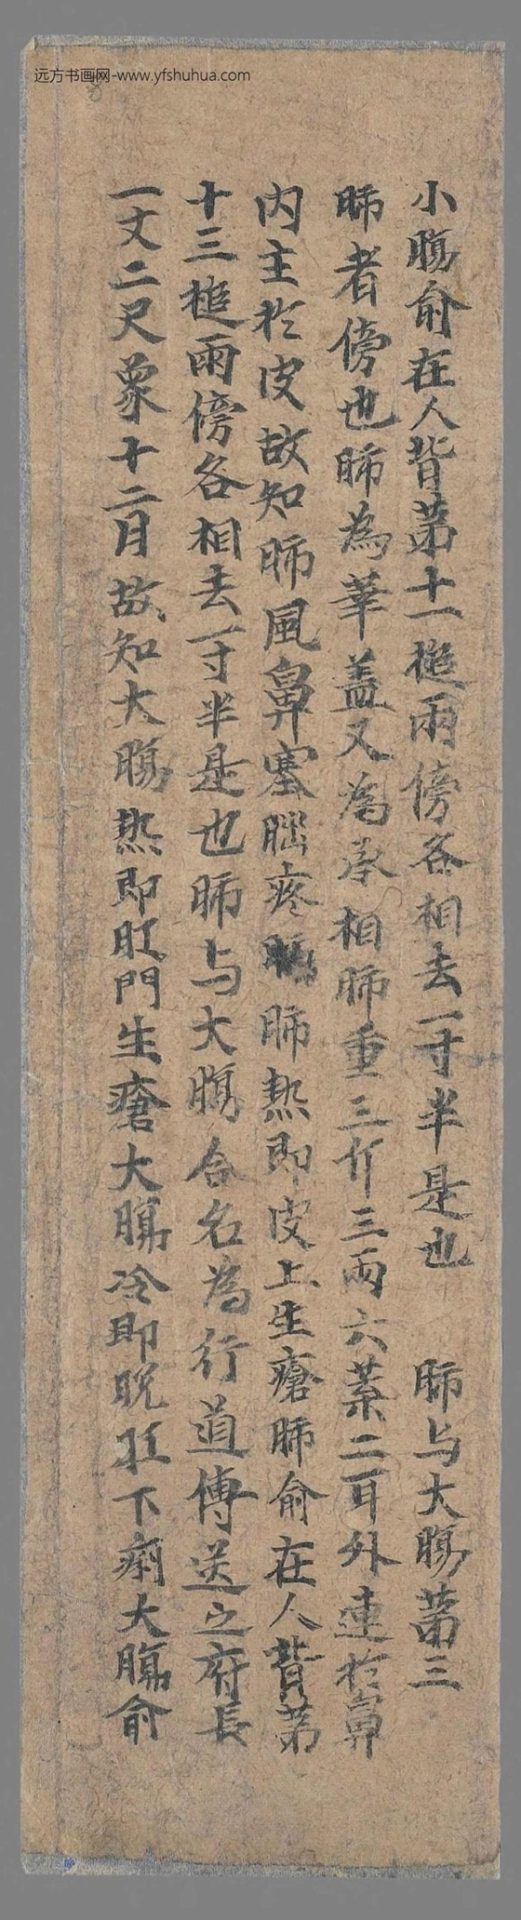 远方书画网-www.yfshuhua.com
小膓俞在人背第十一槌兩傍各相去一寸半是也 肺与大膓第三
肺者傍也肺為華盖又為承相肺重三斤三兩六葉二耳外連扵鼻
内主扵皮故知肺風鼻塞 疼 肺热即皮上生瘡肺俞在人背第
十三槌兩傍各相去一寸半是也肺与大膓合名為行道傳送之府長
一丈二尺象十二月故知大膓热即肛門生瘡大膓冷即脱肛下痢大膓俞